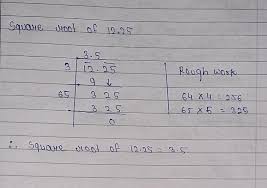 Square root of 12.25
3.5
3 12.25 Rough work
9 ↓
65 325 64 × 4 = 256
- 325 65 × 5 = 325
0
∴ Square root of 12.25 = 3.5